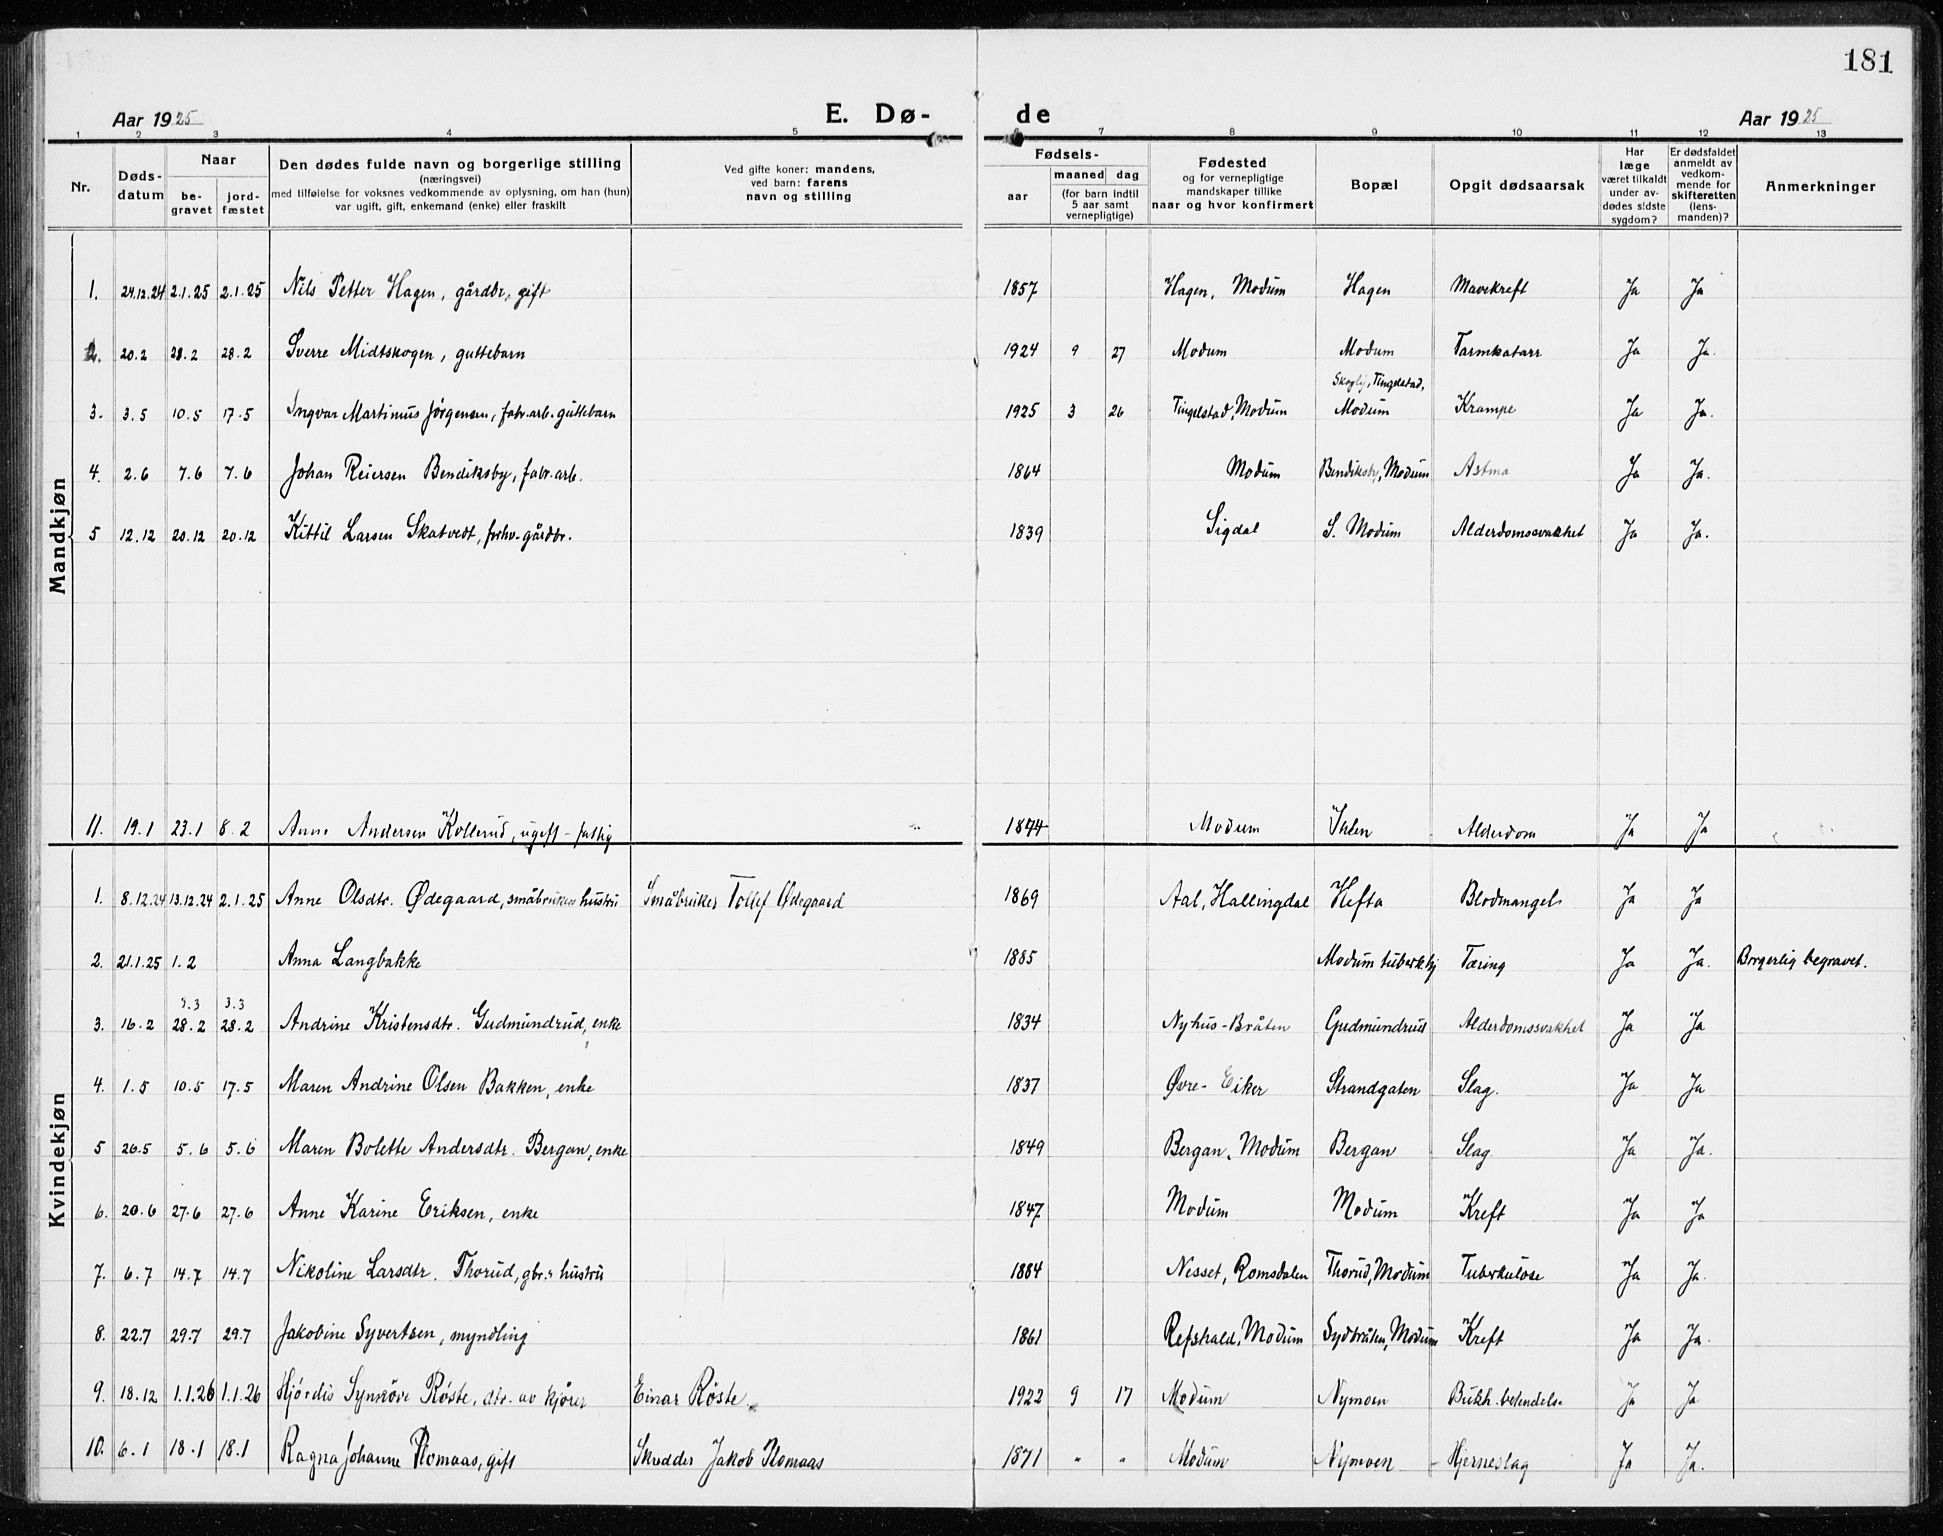 181
Aar 1925 E. Dø- de Aar 1925
1 2 3 4 5 6 7 8 9 10 11 12 13
Nr. Døds-datum Naar be-gravet jord-fæstet Den dødes fulde navn og borgerlige stilling (næringsvei) med tilføielse for voksnes vedkommende av oplysning, om han (hun) var ugift, gift, enkemand (enke) eller fraskilt Ved gifte koner: mandens, ved barn: farens navn og stilling Fødsels- aar maaned dag (for barn indtil 5 aar samt vernepligtige) Fødested og for vernepligtige mandskaper tillike naar og hvor konfirmert Bopæl Opgit dødsaarsak Har læge været tilkaldt under av-dødes sidste sygdom? Er dødsfaldet anmeldt av vedkom-mende for skifteretten (lens-manden)? Anmerkninger
Mandkjøn
1. 24.12.24 2.1.25 2.1.25 Nils Petter Hagen, gårdbr, gift 1857 Hagen, Modum Hagen Mavekreft Ja Ja
2. 20.2 28.2 28.2 Sverre Midtskogen, guttebarn 1924 9 27 Modum Modum Tarmkatarr Ja Ja.
3. 3.5 10.5 17.5 Ingvar Martinus Jørgensen, fabr.arb. guttebarn 1925 3 26 Tingelstad, Modum Skogly, Tingelstad, Modum Krampe Ja Ja.
4. 2.6 7.6 7.6 Johan Reiersen Bendiksby, fabr.arb. 1864 Modum Bendiksby, Modum Astma Ja Ja.
5 12.12 20.12 20.12 Kittil Larsen Skatvedt, forhv. gårdbr. 1839 Sigdal S. Modum Alderdomssvakhet Ja Ja.
11. 19.1 23.1 8.2 Anne Andersen Kollerud, ugift - fattig 1844 Modum Ihlen Alderdom Ja Ja
Kvindekjøn
1. 8.12.24 13.12.24 2.1.25 Anne Olsdtr. Ødegaard, småbrukers hustru Småbruker Tollef Ødegaard 1869 Aal, Hallingdal Hefta Blodmangel Ja Ja
2. 21.1.25 1.2 Anna Langbakke 1885 Modum tuberk.hj Tæring Ja Ja. Borgerlig begravet.
3.3 3.3
3. 16.2 28.2 28.2 Andrine Kristensdtr. Gudmundrud, enke 1834 Nyhus-Bråten Gudmundrud Alderdomssvakhet Ja Ja
4. 1.5 10.5 17.5 Maren Andrine Olsen Bakken, enke 1837 Øvre-Eiker Strandgaten Slag. Ja Ja
5 26.5 5.6 5.6 Maren Bolette Andersdtr. Bergan, enke 1849 Bergan, Modum Bergan Slag Ja Ja.
6. 20.6 27.6 27.6 Anne Karine Eriksen, enke 1847 Modum Modum Kreft Ja Ja
7. 6.7 14.7 14.7 Nikoline Larsdtr. Thorud, gbr.s hustru 1884 Nesset, Romsdalen Thorud, Modum Tuberkulose Ja Ja.
8. 22.7 29.7 29.7 Jakobine Syvertsen, myndling 1861 Refshald, Modum Sydbråten, Modum Kreft Ja Ja.
9. 18.12 1.1.26 1.1.26 Hjørdis Synnøve Røste, dtr. av kjører Einar Røste 1922 9 17 Modum Nymoen Bukh. betendelse Ja Ja
10. 6.1 18.1 18.1 Ragna Johanne Romaas, gift Skredder Jakob Romaas 1871 " " Modum Nymoen - Hjerneslag Ja Ja.